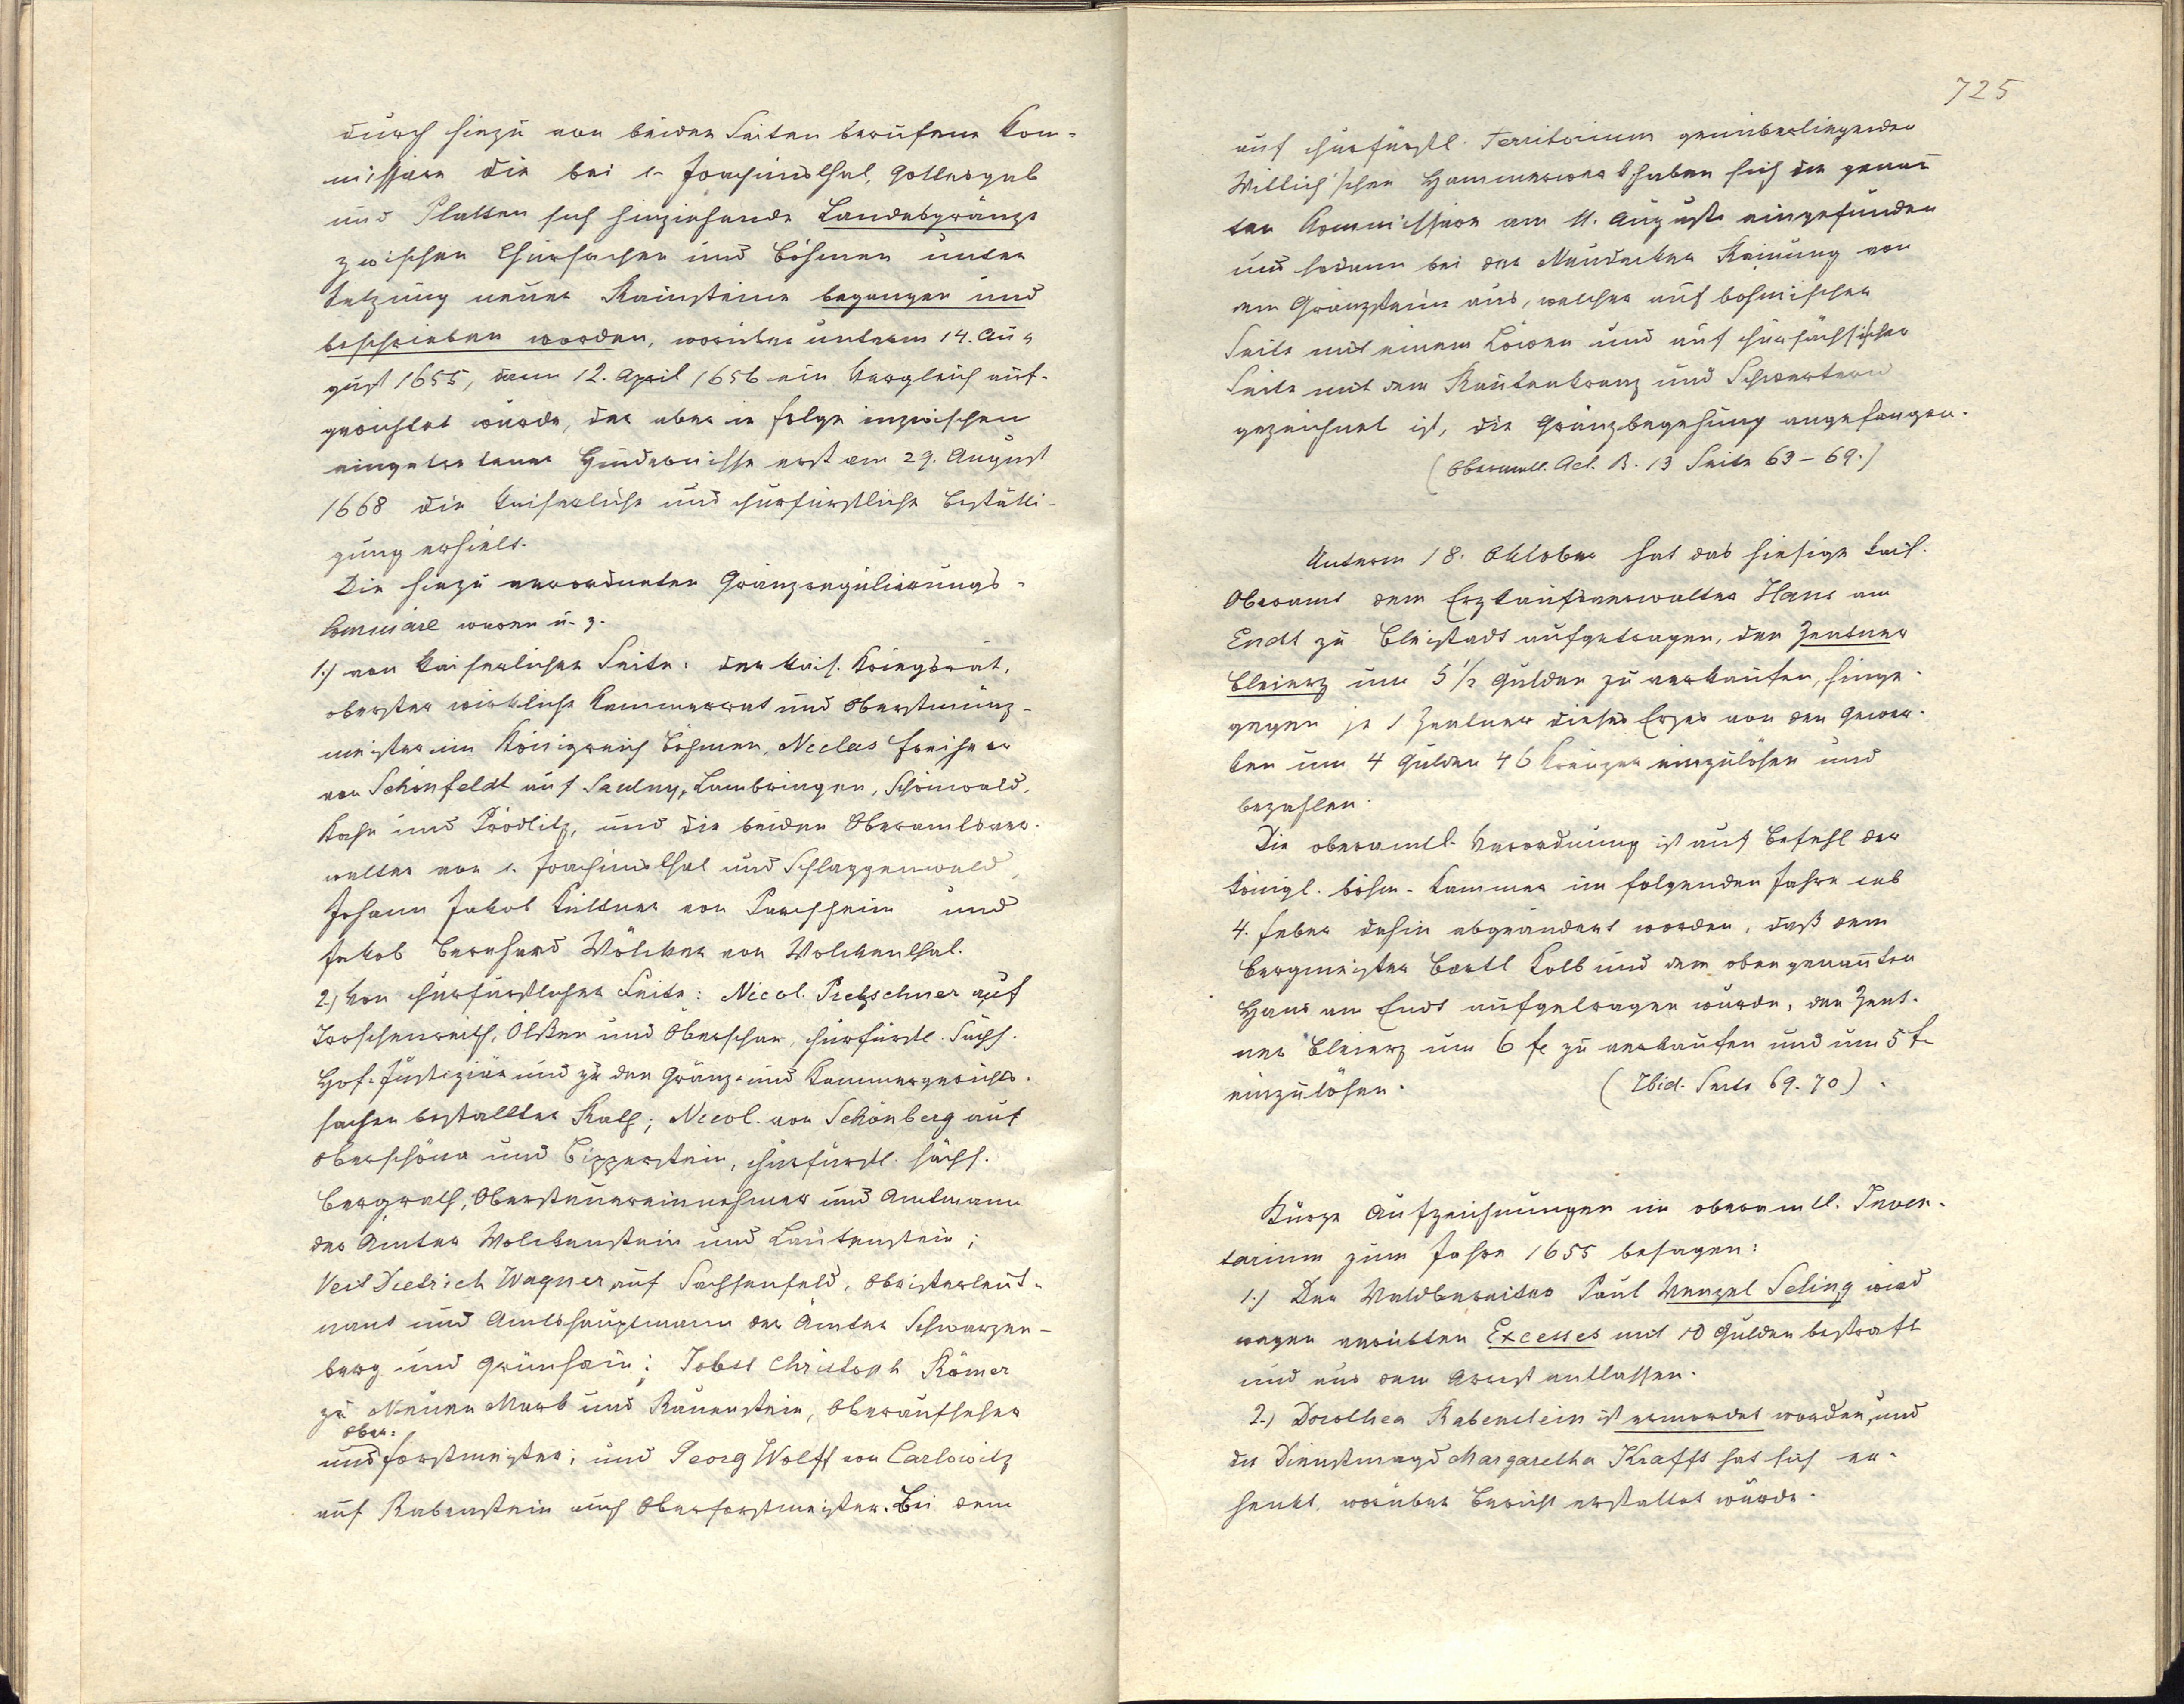 durch hiezu von beiden Seiten berufene Kom-
missäre die bei s. Joachimsthal, Gottesgab
und Platten sich hinziehende Landesgränze
zwischen Chursachsen und Böhmen unter
Setzung neuer Rainsteine begangen und
beschrieben worden, worüber unterm 14. Au-
gust 1655, dann 12. April 1656 ein Vergleich auf-
gerichtet wurde, der aber in folge inzwischen
eingetretener Hindernisse erst am 29. August
1668 die kaiserliche und churfürstliche Bestätti-
gung erhielt.
Die hiezu verordneten Gränzregulierungs-
Commissäre waren u. z.
1.) von kaiserlicher Seite: der kais. Kriegsrat,
oberster wirkliche Kammerrat und Oberstmünz-
meister im Königreich Böhmen, Niclas Freiherr
von Schönfeldt auf Saulny, Lambringen, Schönwald,
Kahn und Prödlitz, und die beiden Oberamtsver-
walter von s. Joachimsthal und Schlaggenwald,
Johann Jakob Küttner von Purschheim und
Jakob Bernhard Wölcker von Wolckenthal.
2.) Von churfürstlicher Seite: Nicol. Pretzschner auf
Troschenreuth, Ölßen und Oberschar, churfürstl. Sächs.
Hof-Justiziär und zu den Gränz- und Kammergerichts-
sachen bestallter Rath; Nicol. von Schönberg auf
Oberschöna und Bipperstein, churfürstl. sächs.
Bergrath, Obersteuereinnehmer und Amtmann
der Ämter Wolckenstein und Lautenstein;
Veit Dietrich Wagner auf Sachsenfeld, Obristerleut-
nant und Amtshauptmann der Ämter Schwarzen-
berg und Grünhain; Jobst Christoph Römer
zu Neuen Mark und Rauenstein, Oberaufseher
Ober:
und Forstmeister; und Georg Wolff von Carlowitz
auf Rabenstein auch Oberforstmeister. Bei dem
725
auf churfürstl. Territorium genüberliegenden
Willich'schen Hammerwerk haben sich die genan̅
ten Kommissäre am 11. Auguste eingefunden
und sodann bei der Neudecker Rainung von
dem Gränzsteine aus, welcher auf böhmischer
Seite mit einem Löwen und auf chursächsischer
Seite mit dem Rautenkranz und Schwertern
gezeichnet ist, die Gränzbegehung angefangen.
(Oberamtl. Act. B. 13 Seite 63-69.)
Unterm 18. Oktober hat das hiesige kais.
Oberamt dem Erzkaufsverwalter Hans am
Endt zu Bleistadt aufgetragen, den Zentner
Bleierz um 5 1/2 Gulden zu verkaufen, hinge-
gegen je 1 Zentner dieses Erzes von den Gewer-
ken um 4 Gulden 46 Kreuzer einzulösen und
bezahlen.
Die oberamtl. Verordnung ist auf Befehl der
königl. böhm. Kammer im folgenden Jahre sub
4. Feber dahin abgeändert worden, daß dem
Bergmeister Bartl Kolb und dem oben genan̅ten
Hans am Endt aufgetragen wurde, den Zent-
ner Bleierz um 6 fl zu verkaufen und um 5 fl
einzulösen. (Ibid. Seite 69. 70).
Kurze Aufzeichnungen im oberamtl. Inven-
tarium zum Jahre 1655 besagen:
1.) Der Waldbereiter Paul Wenzel Seling wird
wegen verübten Excesses mit 10 Gulden bestraft
und aus dem Arrest entlassen.
2.) Dorothea Rabenstein ist ermordet worden, und
die Dienstmagd Margaretha Krafft hat sich er-
henkt, worüber Bericht erstattet wurde.